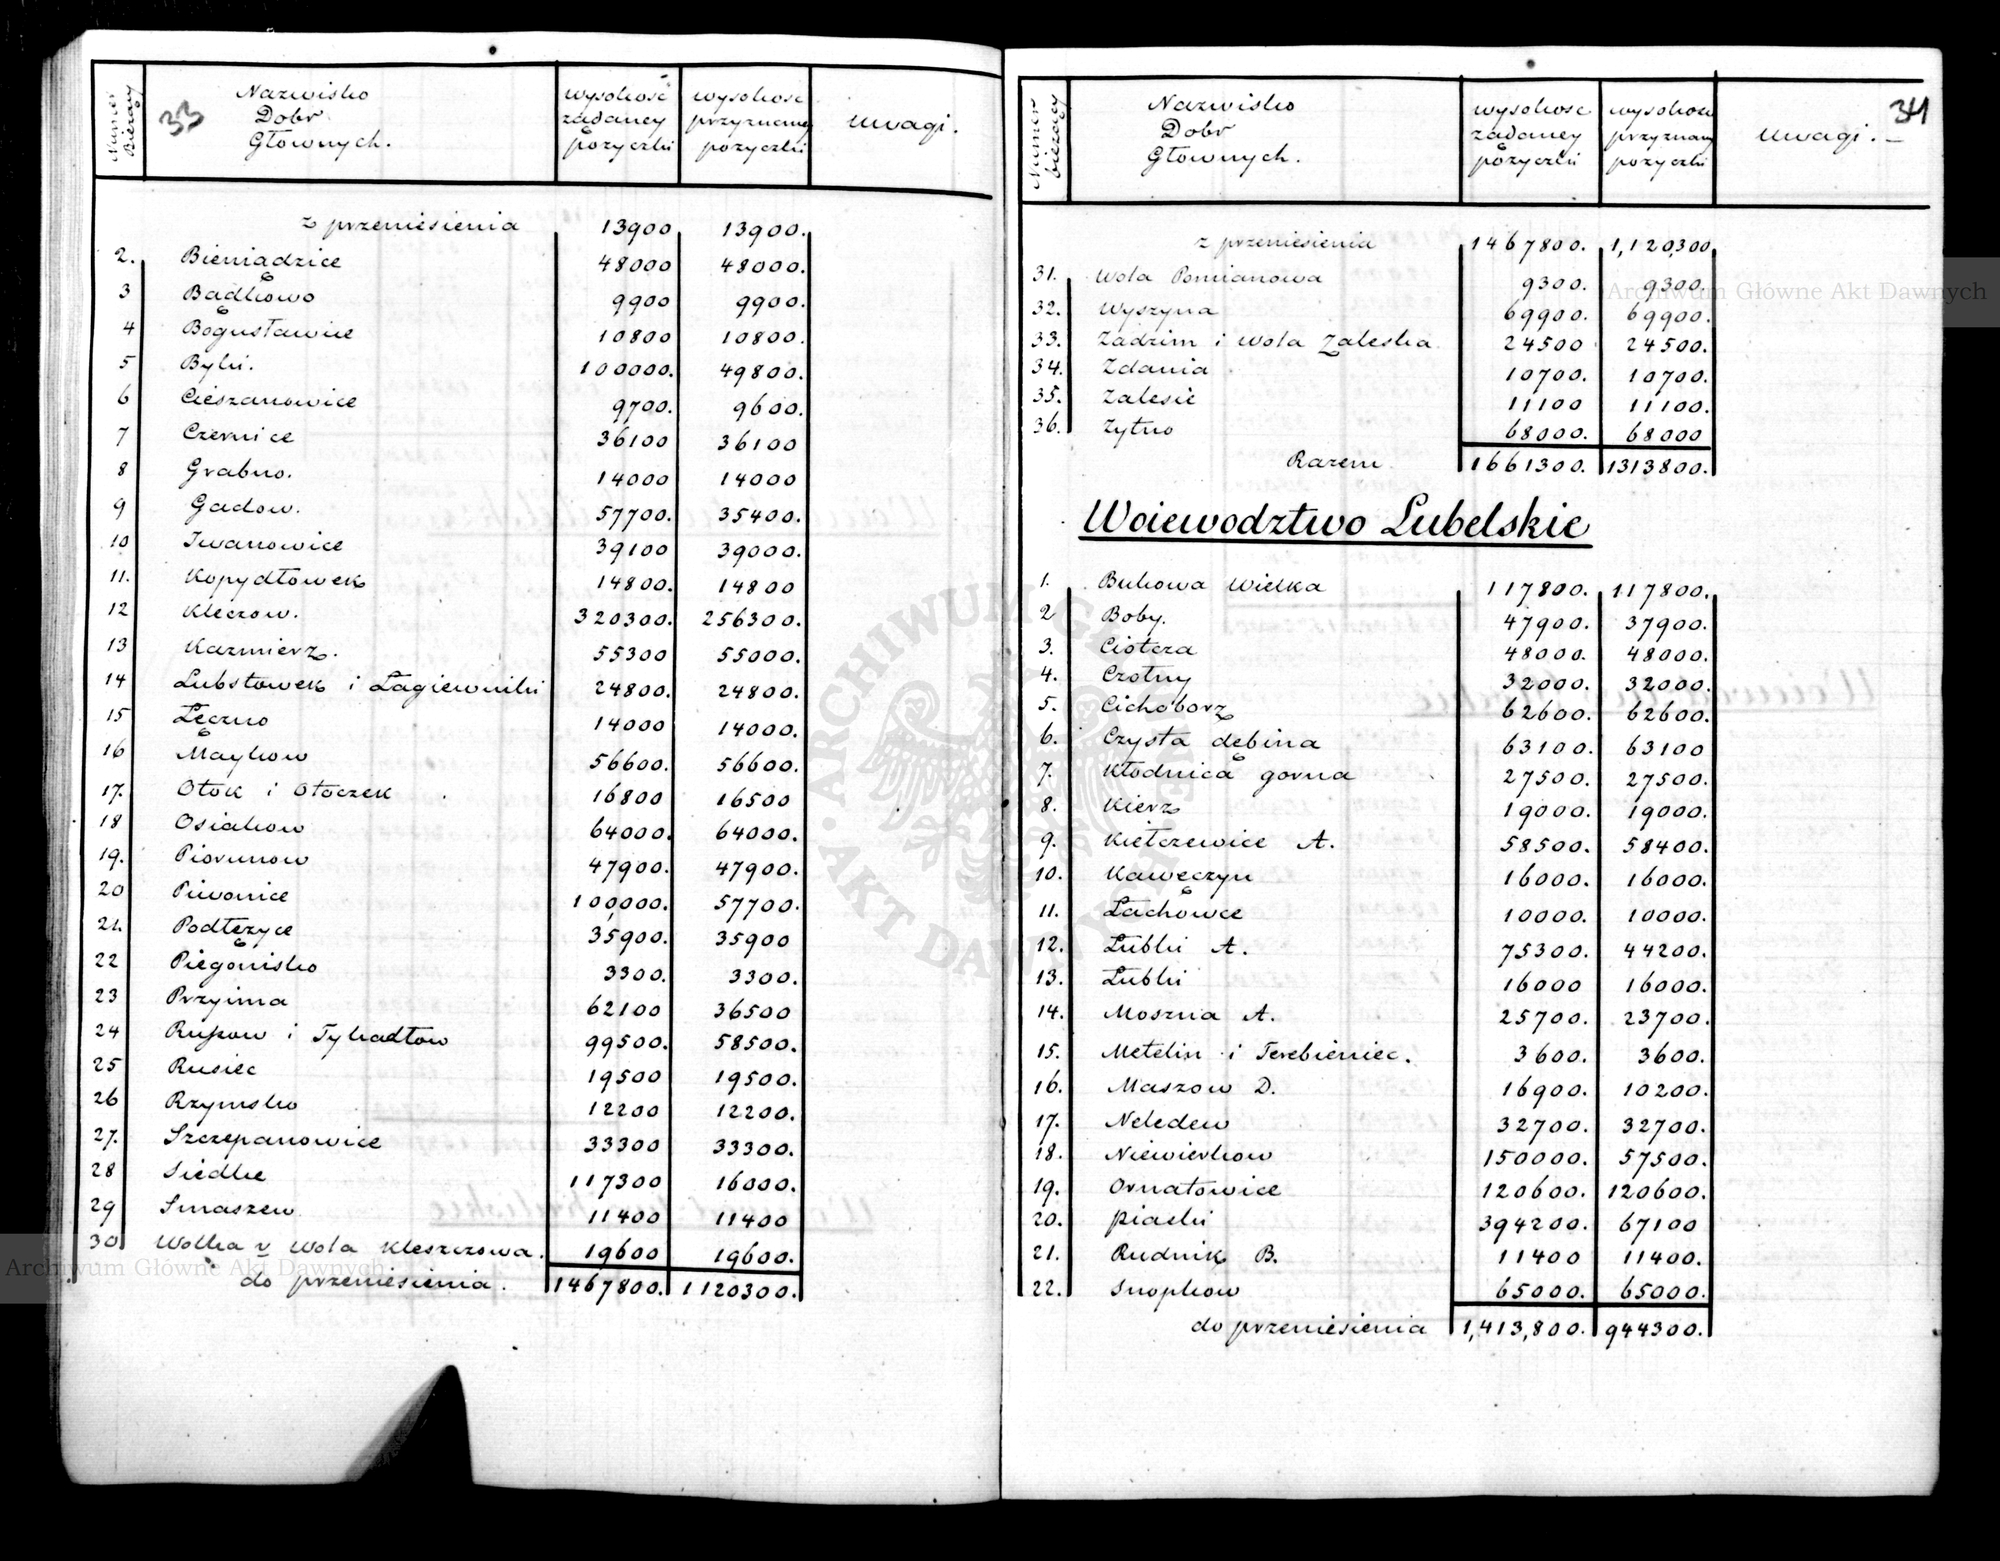 33
Numer Bieżący
Nazwisko Dobr Głównych.
wysokość żądaney pożyczki
wysokość przyznaney pożyczki
uwagi.
z przeniesienia 13900 13900.
2. Bieniadzice 48000 48000.
3 Bądkowo 9900 9900.
4 Bogusławice 10800 10800.
5 Bylin. 100000. 49800.
6 Cieszanowice 9700. 9600.
7 Czernice 36100 36100
8 Grabno. 14000 14000
9 Gadow. 57700. 35400.
10 Iwanowice 39100 39000.
11. Kopydłowek 14800. 14800
12 Kleczow. 320300. 256300.
13 Kazmierz. 55300 55000.
14 Lubstowek i Łagiewniki 24800. 24800.
15 Łęczno 14000 14000.
16 Maykow 56600. 56600.
17. Otok i Otoczek 16800 16500
18 Osiakow 64000. 64000.
19. Piorunow 47900. 47900.
20 Piwonice 100,000. 57700.
21. Podłężyce 35900. 35900
22 Piegonisko 3300. 3300.
23 Przyima 62100 36500
24 Ruszow i Tykadłow 99500. 58500.
25 Rusiec 19500 19500.
26 Rzymsko 12200 12200.
27. Szczepanowice 33300 33300.
28 Siedlce 117300 16000.
29 Smaszew 11400 11400
30 Wolka v Wola Kleszczowa. 19600 19600.
do przeniesienia. 1467800. 1120300.
34
Numer bieżący
Nazwisko Dobr Głównych.
wysokość żądaney pożyczki
wysokość przyznaney pożyczki
uwagi.
z przeniesienia 1467800. 1,120,300
31. Wola Pomianowa 9300. 9300.
32. Wyszyna 69900. 69900.
33. Zadzim i Wola Zaleska 24500 24500.
34. Zdania 10700. 10700.
35. Zalesie 11100 11100.
36. Zytno 68000. 68000
Razem 1661300. 1313800.
Woiewodztwo Lubelskie
1. Bukowa Wielka 117800. 117800.
2 Boby. 47900. 37900.
3. Ciotcza 48000. 48000.
4. Czołny 32000. 32000.
5. Cichoborz 62600. 62600.
6. Czysta dębina 63100. 63100
7. Kłodnica gorna 27500. 27500.
8. Kierz 19000. 19000.
9. Kiełczewice A. 58500. 58400.
10. Kawęczyn 16000. 16000.
11. Łachowce 10000. 10000.
12. Łubki A. 75300. 44200.
13. Łubki 16000 16000.
14. Moszna A. 25700. 23700.
15. Metelin i Terebieniec. 3600. 3600.
16. Maszow D. 16900. 10200.
17. Neledew 32700. 32700.
18. Niewierkow 150000. 57500.
19. Ornatowice 120600. 120600.
20. Piaski 394200. 67100
21. Rudnik B. 11400 11400.
22. Snopkow 65000. 65000.
do przeniesienia 1,413,800. 944300.
Archiwum Główne Akt Dawnych
Archiwum Główne Akt Dawnych
ARCHIWUM GŁÓWNE AKT DAWNYCH